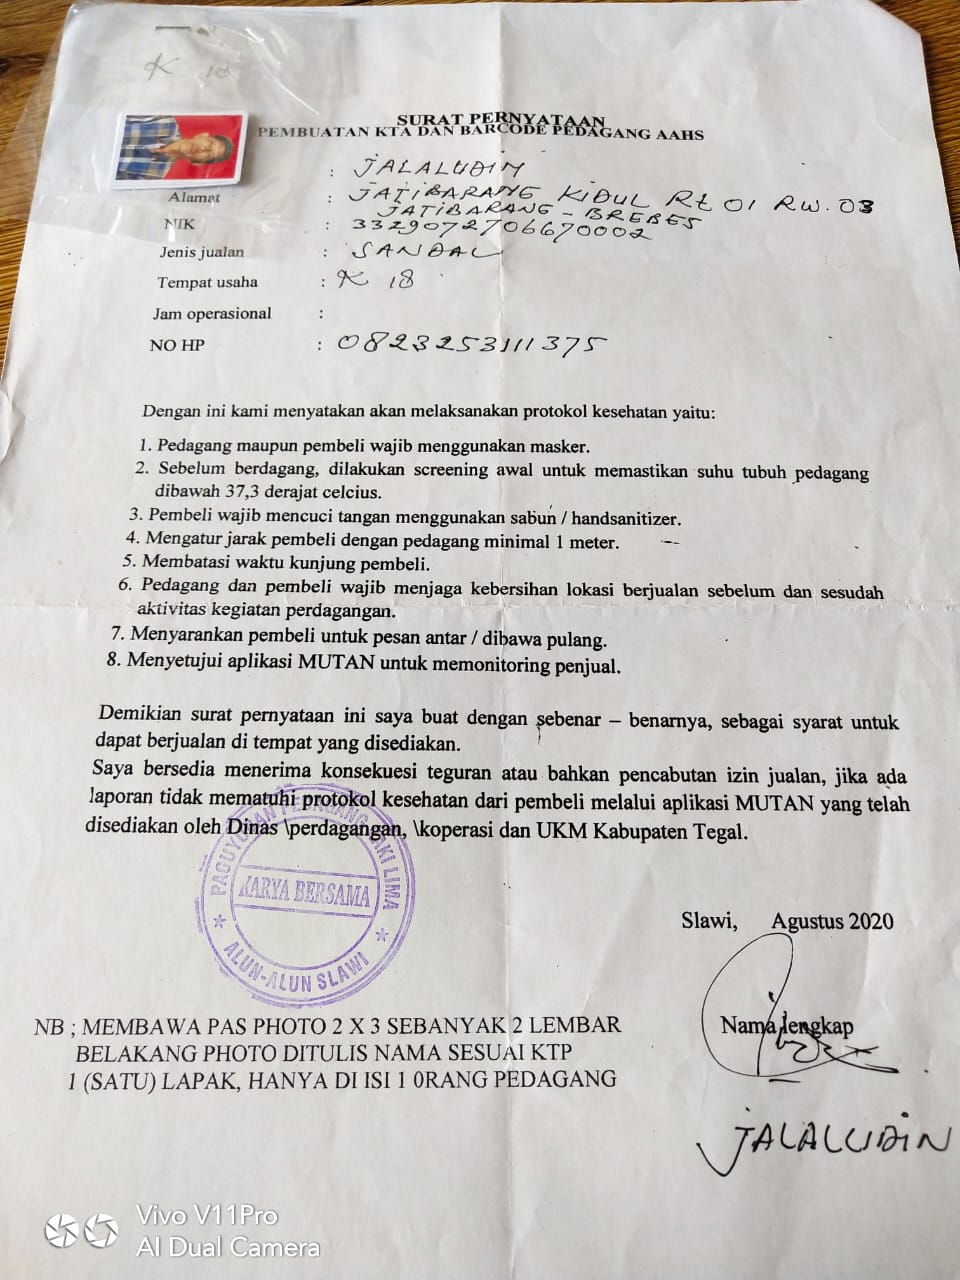 K 18
SURAT PERNYATAAN
PEMBUATAN KTA DAN BARCODE PEDAGANG AAHS
: JALALUDIN
Alamat : JATIBARANG KIDUL Rt 01 RW. 03
JATIBARANG - BREBES
NIK : 3329072706670002
Jenis jualan : SANDAL
Tempat usaha : K 18
Jam operasional :
NO HP : 0823253111375
Dengan ini kami menyatakan akan melaksanakan protokol kesehatan yaitu:
1. Pedagang maupun pembeli wajib menggunakan masker.
2. Sebelum berdagang, dilakukan screening awal untuk memastikan suhu tubuh pedagang
dibawah 37,3 derajat celcius.
3. Pembeli wajib mencuci tangan menggunakan sabun / handsanitizer.
4. Mengatur jarak pembeli dengan pedagang minimal 1 meter.
5. Membatasi waktu kunjung pembeli.
6. Pedagang dan pembeli wajib menjaga kebersihan lokasi berjualan sebelum dan sesudah
aktivitas kegiatan perdagangan.
7. Menyarankan pembeli untuk pesan antar / dibawa pulang.
8. Menyetujui aplikasi MUTAN untuk memonitoring penjual.
Demikian surat pernyataan ini saya buat dengan sebenar – benarnya, sebagai syarat untuk
dapat berjualan di tempat yang disediakan.
Saya bersedia menerima konsekuesi teguran atau bahkan pencabutan izin jualan, jika ada
laporan tidak mematuhi protokol kesehatan dari pembeli melalui aplikasi MUTAN yang telah
disediakan oleh Dinas \perdagangan, \koperasi dan UKM Kabupaten Tegal.
PAGUYUBAN PEDAGANG KAKI LIMA
KARYA BERSAMA
ALUN-ALUN SLAWI
Slawi, Agustus 2020
Nama lengkap
JALALUDIN
NB ; MEMBAWA PAS PHOTO 2 X 3 SEBANYAK 2 LEMBAR
BELAKANG PHOTO DITULIS NAMA SESUAI KTP
1 (SATU) LAPAK, HANYA DI ISI 1 0RANG PEDAGANG
Vivo V11Pro
AI Dual Camera